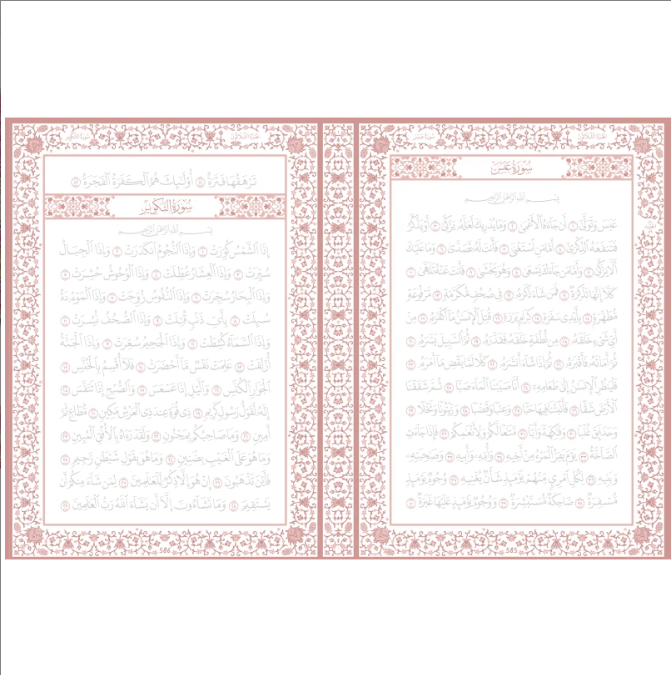 سُورَةُ عَبَسَ
بِسْمِ اللَّهِ الرَّحْمَٰنِ الرَّحِيمِ
عَبَسَ وَتَوَلَّىٰٓ ١ أَن جَآءَهُ ٱلْأَعْمَىٰ ٢ وَمَا يُدْرِيكَ لَعَلَّهُۥ يَزَّكَّىٰٓ ٣ أَوْ يَذَّكَّرُ
فَتَنفَعَهُ ٱلذِّكْرَىٰٓ ٤ أَمَّا مَنِ ٱسْتَغْنَىٰ ٥ فَأَنتَ لَهُۥ تَصَدَّىٰ ٦ وَمَا عَلَيْكَ
أَلَّا يَزَّكَّىٰ ٧ وَأَمَّا مَن جَآءَكَ يَسْعَىٰ ٨ وَهُوَ يَخْشَىٰ ٩ فَأَنتَ عَنْهُ تَلَهَّىٰ ١٠
كَلَّآ إِنَّهَا تَذْكِرَةٌ ١١ فَمَن شَآءَ ذَكَرَهُۥ ١٢ فِى صُحُفٍ مُّكَرَّمَةٍ ١٣ مَّرْفُوعَةٍ
مُّطَهَّرَةٍۭ ١٤ بِأَيْدِى سَفَرَةٍ ١٥ كِرَامٍۭ بَرَرَةٍ ١٦ قُتِلَ ٱلْإِنسَٰنُ مَآ أَكْفَرَهُۥ ١٧ مِنْ
أَىِّ شَىْءٍ خَلَقَهُۥ ١٨ مِن نُّطْفَةٍ خَلَقَهُۥ فَقَدَّرَهُۥ ١٩ ثُمَّ ٱلسَّبِيلَ يَسَّرَهُۥ ٢٠
ثُمَّ أَمَاتَهُۥ فَأَقْبَرَهُۥ ٢١ ثُمَّ إِذَا شَآءَ أَنشَرَهُۥ ٢٢ كَلَّا لَمَّا يَقْضِ مَآ أَمَرَهُۥ ٢٣
فَلْيَنظُرِ ٱلْإِنسَٰنُ إِلَىٰ طَعَامِهِۦٓ ٢٤ أَنَّا صَبَبْنَا ٱلْمَآءَ صَبًّا ٢٥ ثُمَّ شَقَقْنَا
ٱلْأَرْضَ شَقًّا ٢٦ فَأَنۢبَتْنَا فِيهَا حَبًّا ٢٧ وَعِنَبًا وَقَضْبًا ٢٨ وَزَيْتُونًا وَنَخْلًا ٢٩
وَحَدَآئِقَ غُلْبًا ٣٠ وَفَٰكِهَةً وَأَبًّا ٣١ مَّتَٰعًا لَّكُمْ وَلِأَنْعَٰمِكُمْ ٣٢ فَإِذَا جَآءَتِ
ٱلصَّآخَّةُ ٣٣ يَوْمَ يَفِرُّ ٱلْمَرْءُ مِنْ أَخِيهِ ٣٤ وَأُمِّهِۦ وَأَبِيهِ ٣٥ وَصَٰحِبَتِهِۦ
وَبَنِيهِ ٣٦ لِكُلِّ ٱمْرِئٍ مِّنْهُمْ يَوْمَئِذٍ شَأْنٌ يُغْنِيهِ ٣٧ وُجُوهٌ يَوْمَئِذٍ
مُّسْفِرَةٌ ٣٨ ضَاحِكَةٌ مُّسْتَبْشِرَةٌ ٣٩ وَوُجُوهٌ يَوْمَئِذٍ عَلَيْهَا غَبَرَةٌ ٤٠
585
تَرْهَقُهَا قَتَرَةٌ ٤١ أُو۟لَٰٓئِكَ هُمُ ٱلْكَفَرَةُ ٱلْفَجَرَةُ ٤٢
سُورَةُ التَّكْوِيرِ
بِسْمِ اللَّهِ الرَّحْمَٰنِ الرَّحِيمِ
إِذَا ٱلشَّمْسُ كُوِّرَتْ ١ وَإِذَا ٱلنُّجُومُ ٱنكَدَرَتْ ٢ وَإِذَا ٱلْجِبَالُ
سُيِّرَتْ ٣ وَإِذَا ٱلْعِشَارُ عُطِّلَتْ ٤ وَإِذَا ٱلْوُحُوشُ حُشِرَتْ ٥
وَإِذَا ٱلْبِحَارُ سُجِّرَتْ ٦ وَإِذَا ٱلنُّفُوسُ زُوِّجَتْ ٧ وَإِذَا ٱلْمَوْءُۥدَةُ
سُئِلَتْ ٨ بِأَىِّ ذَنۢبٍ قُتِلَتْ ٩ وَإِذَا ٱلصُّحُفُ نُشِرَتْ ١٠
وَإِذَا ٱلسَّمَآءُ كُشِطَتْ ١١ وَإِذَا ٱلْجَحِيمُ سُعِّرَتْ ١٢ وَإِذَا ٱلْجَنَّةُ
أُزْلِفَتْ ١٣ عَلِمَتْ نَفْسٌ مَّآ أَحْضَرَتْ ١٤ فَلَآ أُقْسِمُ بِٱلْخُنَّسِ ١٥
ٱلْجَوَارِ ٱلْكُنَّسِ ١٦ وَٱلَّيْلِ إِذَا عَسْعَسَ ١٧ وَٱلصُّبْحِ إِذَا تَنَفَّسَ ١٨
إِنَّهُۥ لَقَوْلُ رَسُولٍ كَرِيمٍ ١٩ ذِى قُوَّةٍ عِندَ ذِى ٱلْعَرْشِ مَكِينٍ ٢٠ مُّطَاعٍ ثَمَّ
أَمِينٍ ٢١ وَمَا صَاحِبُكُم بِمَجْنُونٍ ٢٢ وَلَقَدْ رَءَاهُ بِٱلْأُفُقِ ٱلْمُبِينِ ٢٣
وَمَا هُوَ عَلَى ٱلْغَيْبِ بِضَنِينٍ ٢٤ وَمَا هُوَ بِقَوْلِ شَيْطَٰنٍ رَّجِيمٍ ٢٥
فَأَيْنَ تَذْهَبُونَ ٢٦ إِنْ هُوَ إِلَّا ذِكْرٌ لِّلْعَٰلَمِينَ ٢٧ لِمَن شَآءَ مِنكُمْ أَن
يَسْتَقِيمَ ٢٨ وَمَا تَشَآءُونَ إِلَّآ أَن يَشَآءَ ٱللَّهُ رَبُّ ٱلْعَٰلَمِينَ ٢٩
586